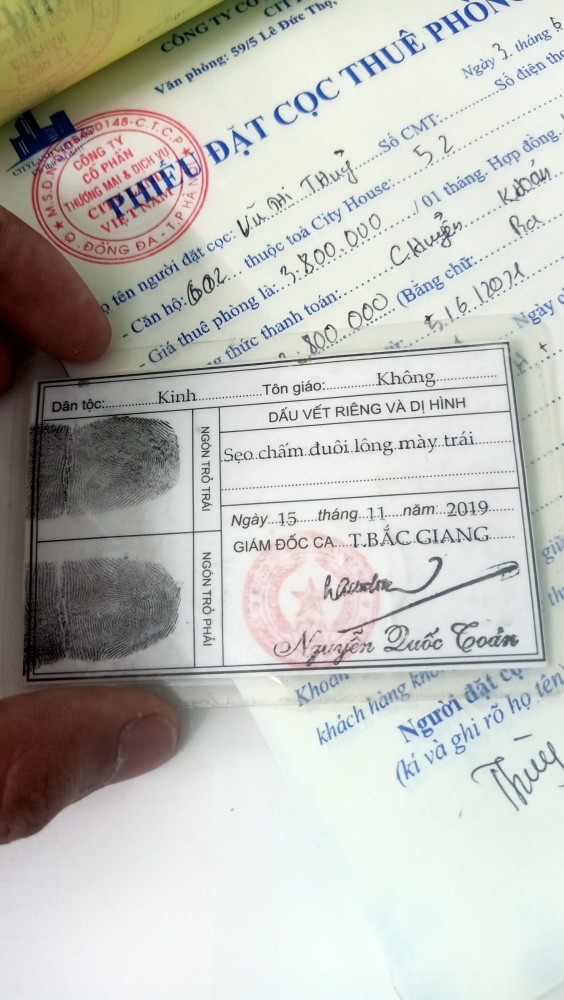 CÔNG TY CỔ
Văn phòng: 59/5 Lê Đức Thọ,
PHIẾU ĐẶT CỌC THUÊ PHÒNG
Ngày 3 tháng 6
Số điện tho
CÔNG TY
CỔ PHẦN
THƯƠNG MẠI & DỊCH VỤ
VIỆT NAM
Q. ĐỐNG ĐA - T.P HÀ
tên người đặt cọc: Vũ Thị Thuỷ Số CMT:
- Căn hộ: 602 thuộc toà City House: 52
- Giá thuê phòng là: 3.800.000 / 01 tháng. Hợp đồng
thức thanh toán: Chuyển Khoản
800 000 (Bằng chữ: Ba
Ngày
Dân tộc: Kinh Tôn giáo: Không
NGÓN TRỎ TRÁI
NGÓN TRỎ PHẢI
DẤU VẾT RIÊNG VÀ DỊ HÌNH
Sẹo chấm đuôi lông mày trái
Ngày 15 tháng 11 năm 2019
GIÁM ĐỐC CA T.BẮC GIANG
Nguyễn Quốc Toản
Khoản
khách hàng
Người đặt cọ
(kí và ghi rõ họ tên)
Thùy